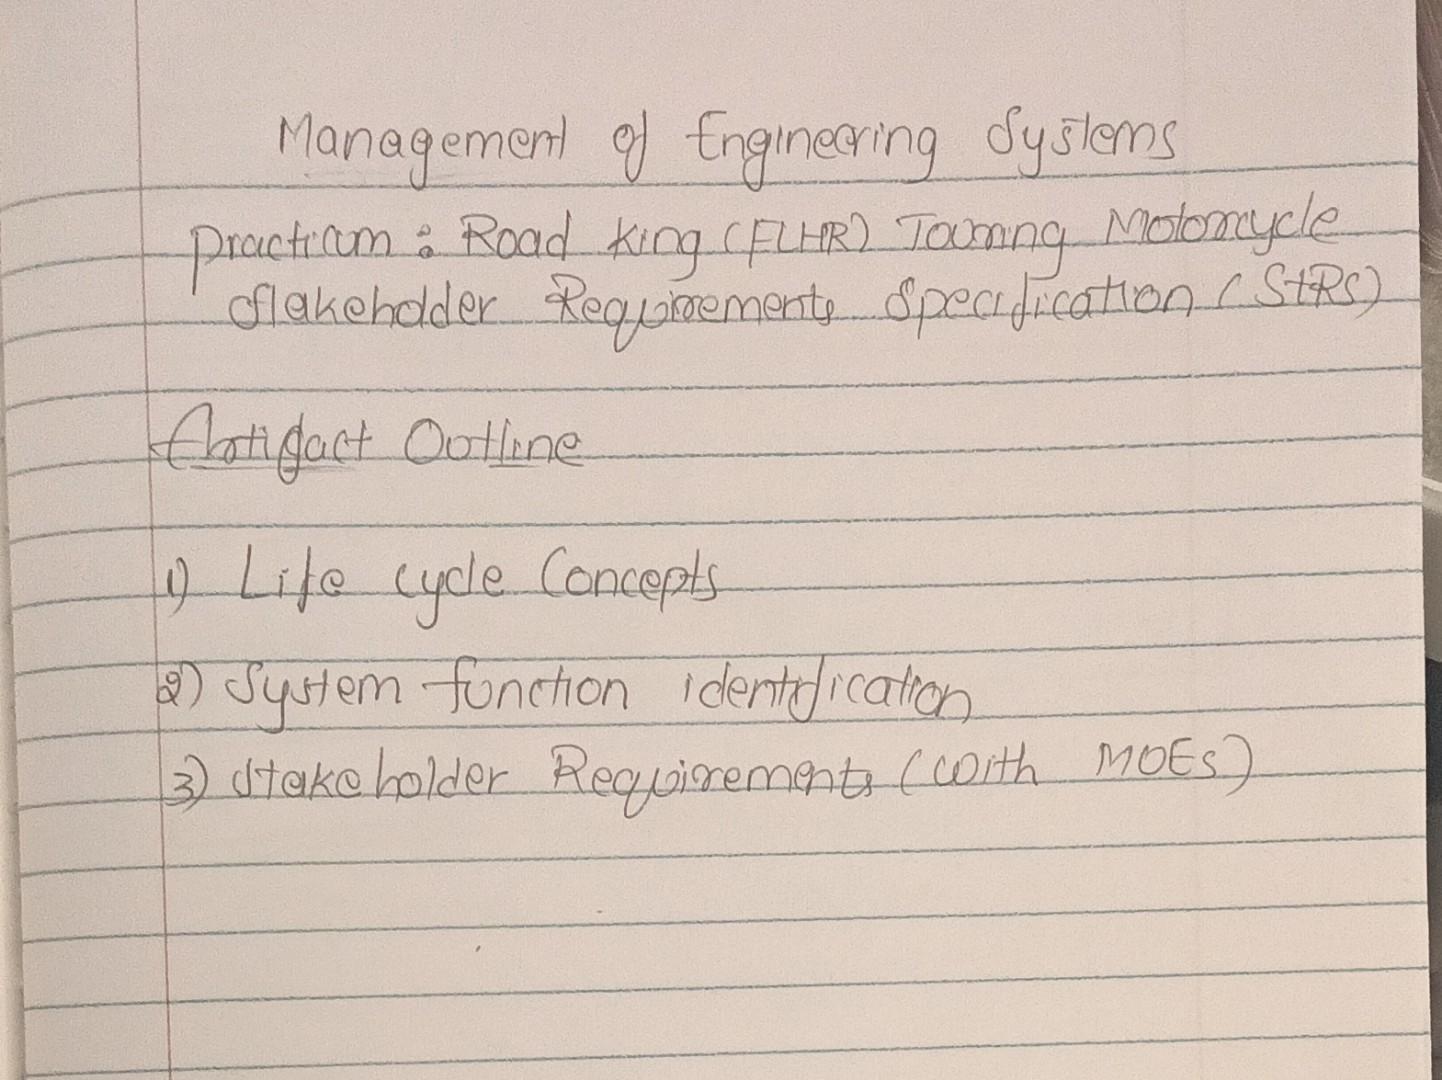 Management of Engineering Systems
Practicum: Road King (FLHR) Touring Motorcycle
Stakeholder Requirements Specification (StRS)
Artifact Outline
1) Life cycle Concepts
2) System function identification
3) Stakeholder Requirements (with MOEs)